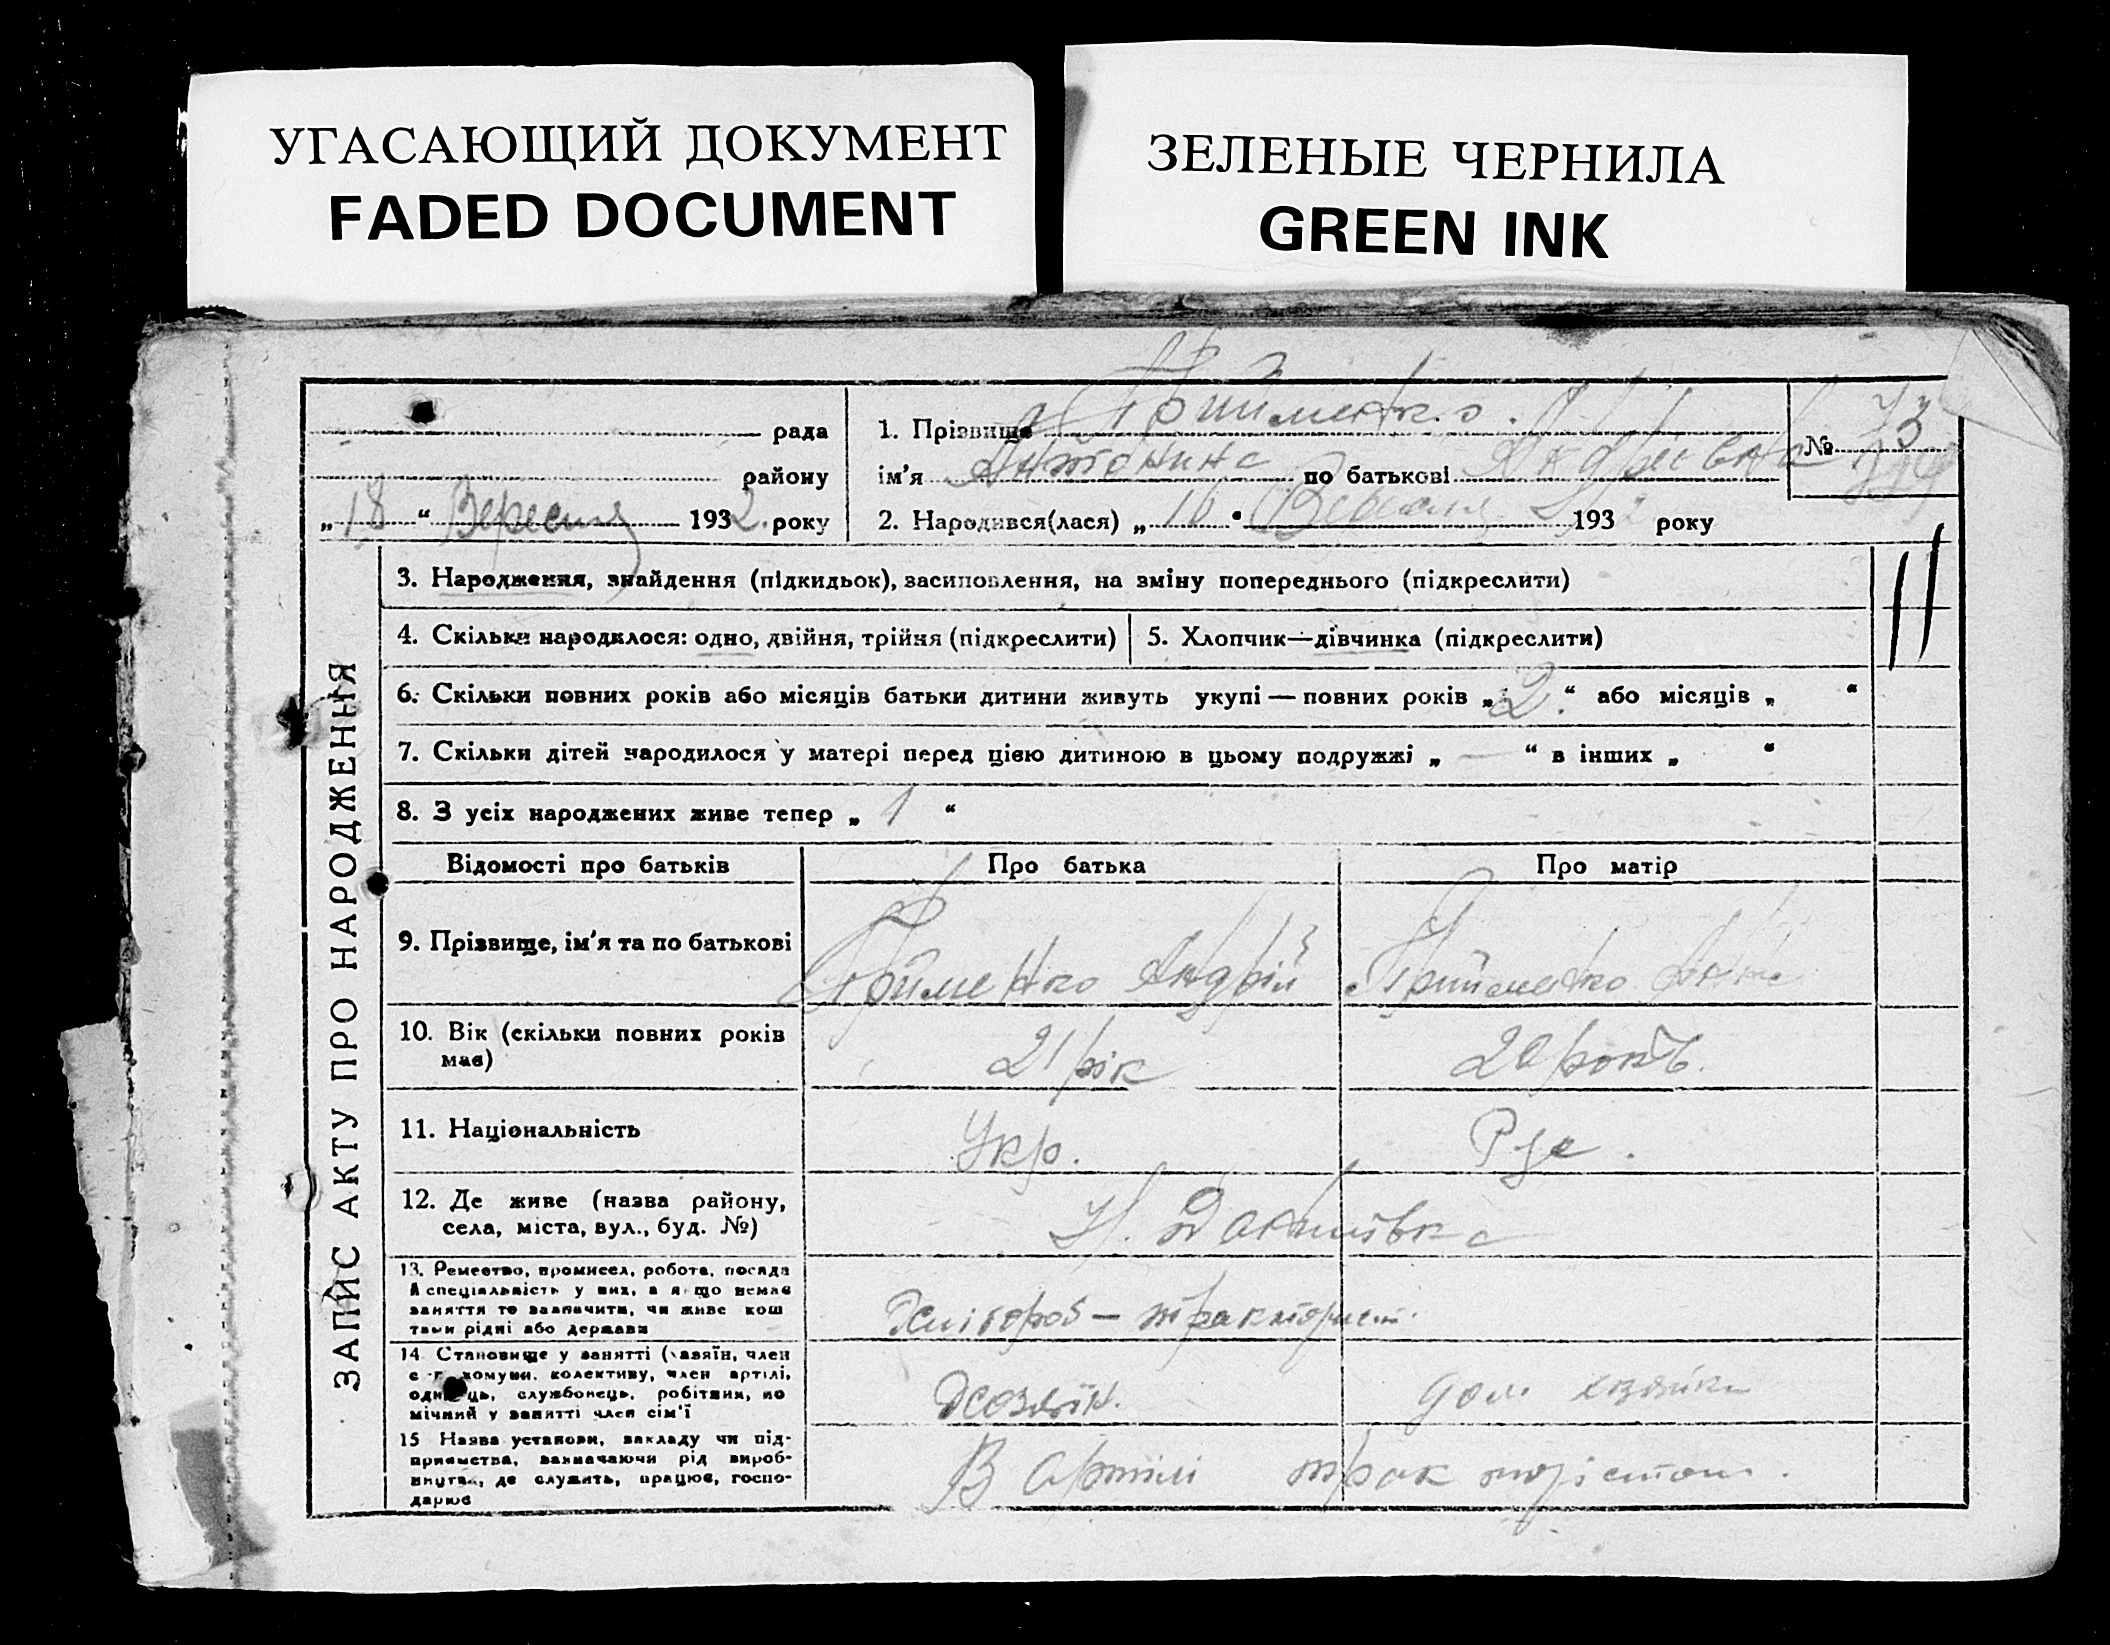 УГАСАЮЩИЙ ДОКУМЕНТ
FADED DOCUMENT
ЗЕЛЕНЫЕ ЧЕРНИЛА
GREEN INK
рада
району
„18“ Вересня 1932. року
1. Прізвище Прийменко.
ім'я Антонина по батькові Андріївна
№ 73
2. Народився(лася) „16“ Вересня 193 року
ЗАПИС АКТУ ПРО НАРОДЖЕННЯ
3. Народження, знайдення (підкидьок), засиновлення, на зміну попереднього (підкреслити)
4. Скільки народилося: одно, двійня, трійня (підкреслити)
5. Хлопчик—дівчинка (підкреслити)
6. Скільки повних років або місяців батьки дитини живуть укупі — повних років „2.“ або місяців „ “
7. Скільки дітей народилося у матері перед цією дитиною в цьому подружжі „ — “ в інших „ “
8. З усіх народжених живе тепер „ 1 “
Відомості про батьків
Про батька
Про матір
9. Прізвище, ім'я та по батькові
Прийменко Андрій
Прийменко
10. Вік (скільки повних років має)
21 рік
20 років.
11. Національність
Укр.
12. Де живе (назва району,
села, міста, вул., буд. №)
Н.
13. Ремество, промисел, робота, посада
й спеціяльність у них, а якщо немає
заняття то зазначити, чи живе кош
тами рідні або держави
Хлібороб — тракторист.
14. Становище у занятті (хазяїн, член
с.-г. комуни, колективу, член артілі,
одинець, службовець, робітник, по
мічний у занятті член сім'ї
Хозяїн.
дом. хазяйка
15 Назва установи, закладу чи під-
приємства, зазначаючи рід вироб-
ництва, де служить, працює, госпо-
дарює
В артілі трактористом.